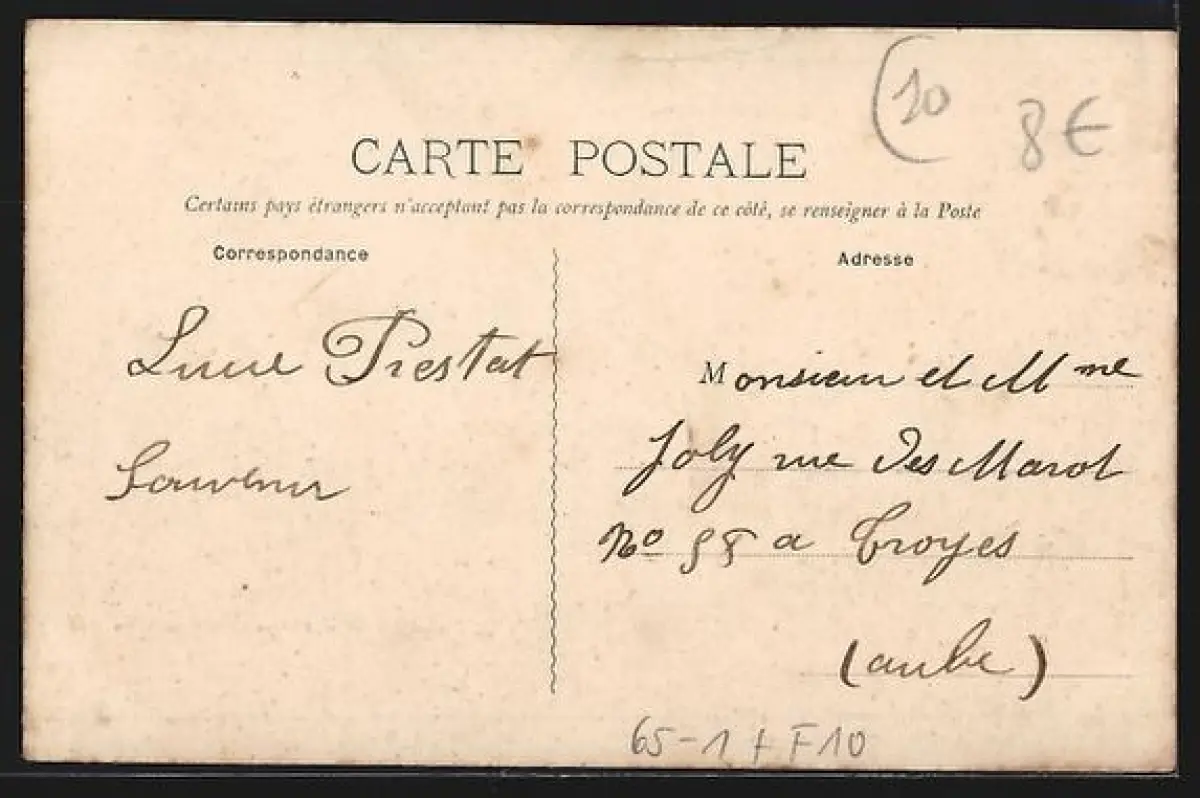 (10
8€
CARTE POSTALE
Certains pays étrangers n'acceptant pas la correspondance de ce côté, se renseigner à la Poste
Correspondance
Adresse
Lucie Prestat
Souvenir
Monsieur et Mme
Joly rue Des Marot
No a Troyes
(aube)
65-1 F10